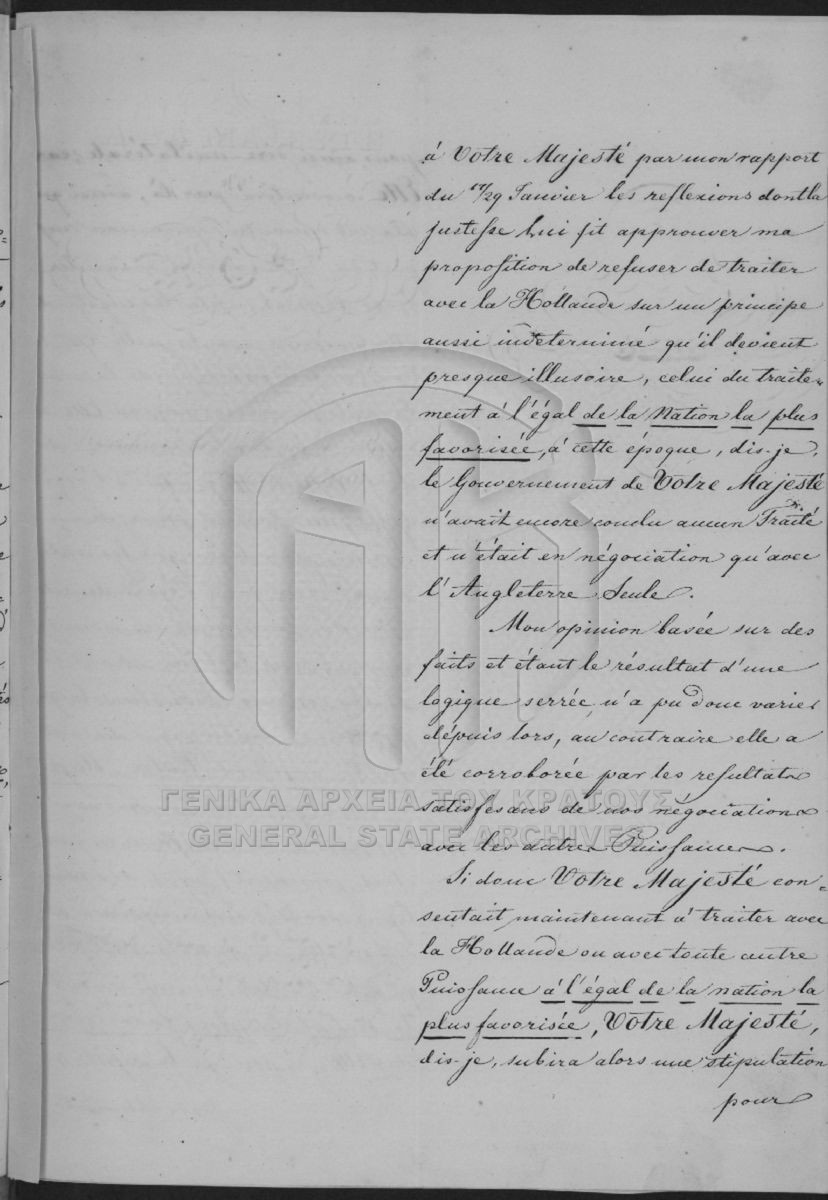 à Votre Majesté par mon rapport
du 17/29 Janvier les reflexions dont la
justesse Lui fit approuver ma
proposition de refuser de traiter
avec la Hollande sur un principe
aussi indeterminé qu'il devient
presque illusoire, celui du traite=
ment à l'égal de la Nation la plus
favorisée, à cette époque, dis-je,
le Gouvernement de Votre Majesté
n'avait encore conclu aucun Traité
et n'était en négociation qu'avec
l'Angleterre Seule.
Mon opinion basée sur des
faits et étant le résultat d'une
logique serrée, n'a pu donc varier
dépuis lors, au contraire elle a
été corroborée par les resultats
satisfesans de nos négociations
avec les autres Puissances.
Si donc Votre Majesté con=
sentait maintenant à traiter avec
la Hollande ou avec toute autre
Puissance à l'égal de la nation la
plus favorisée, Votre Majesté,
dis-je, subira alors une stipulation
pour
ΓΕΝΙΚΑ ΑΡΧΕΙΑ ΤΟΥ ΚΡΑΤΟΥΣ
GENERAL STATE ARCHIVES